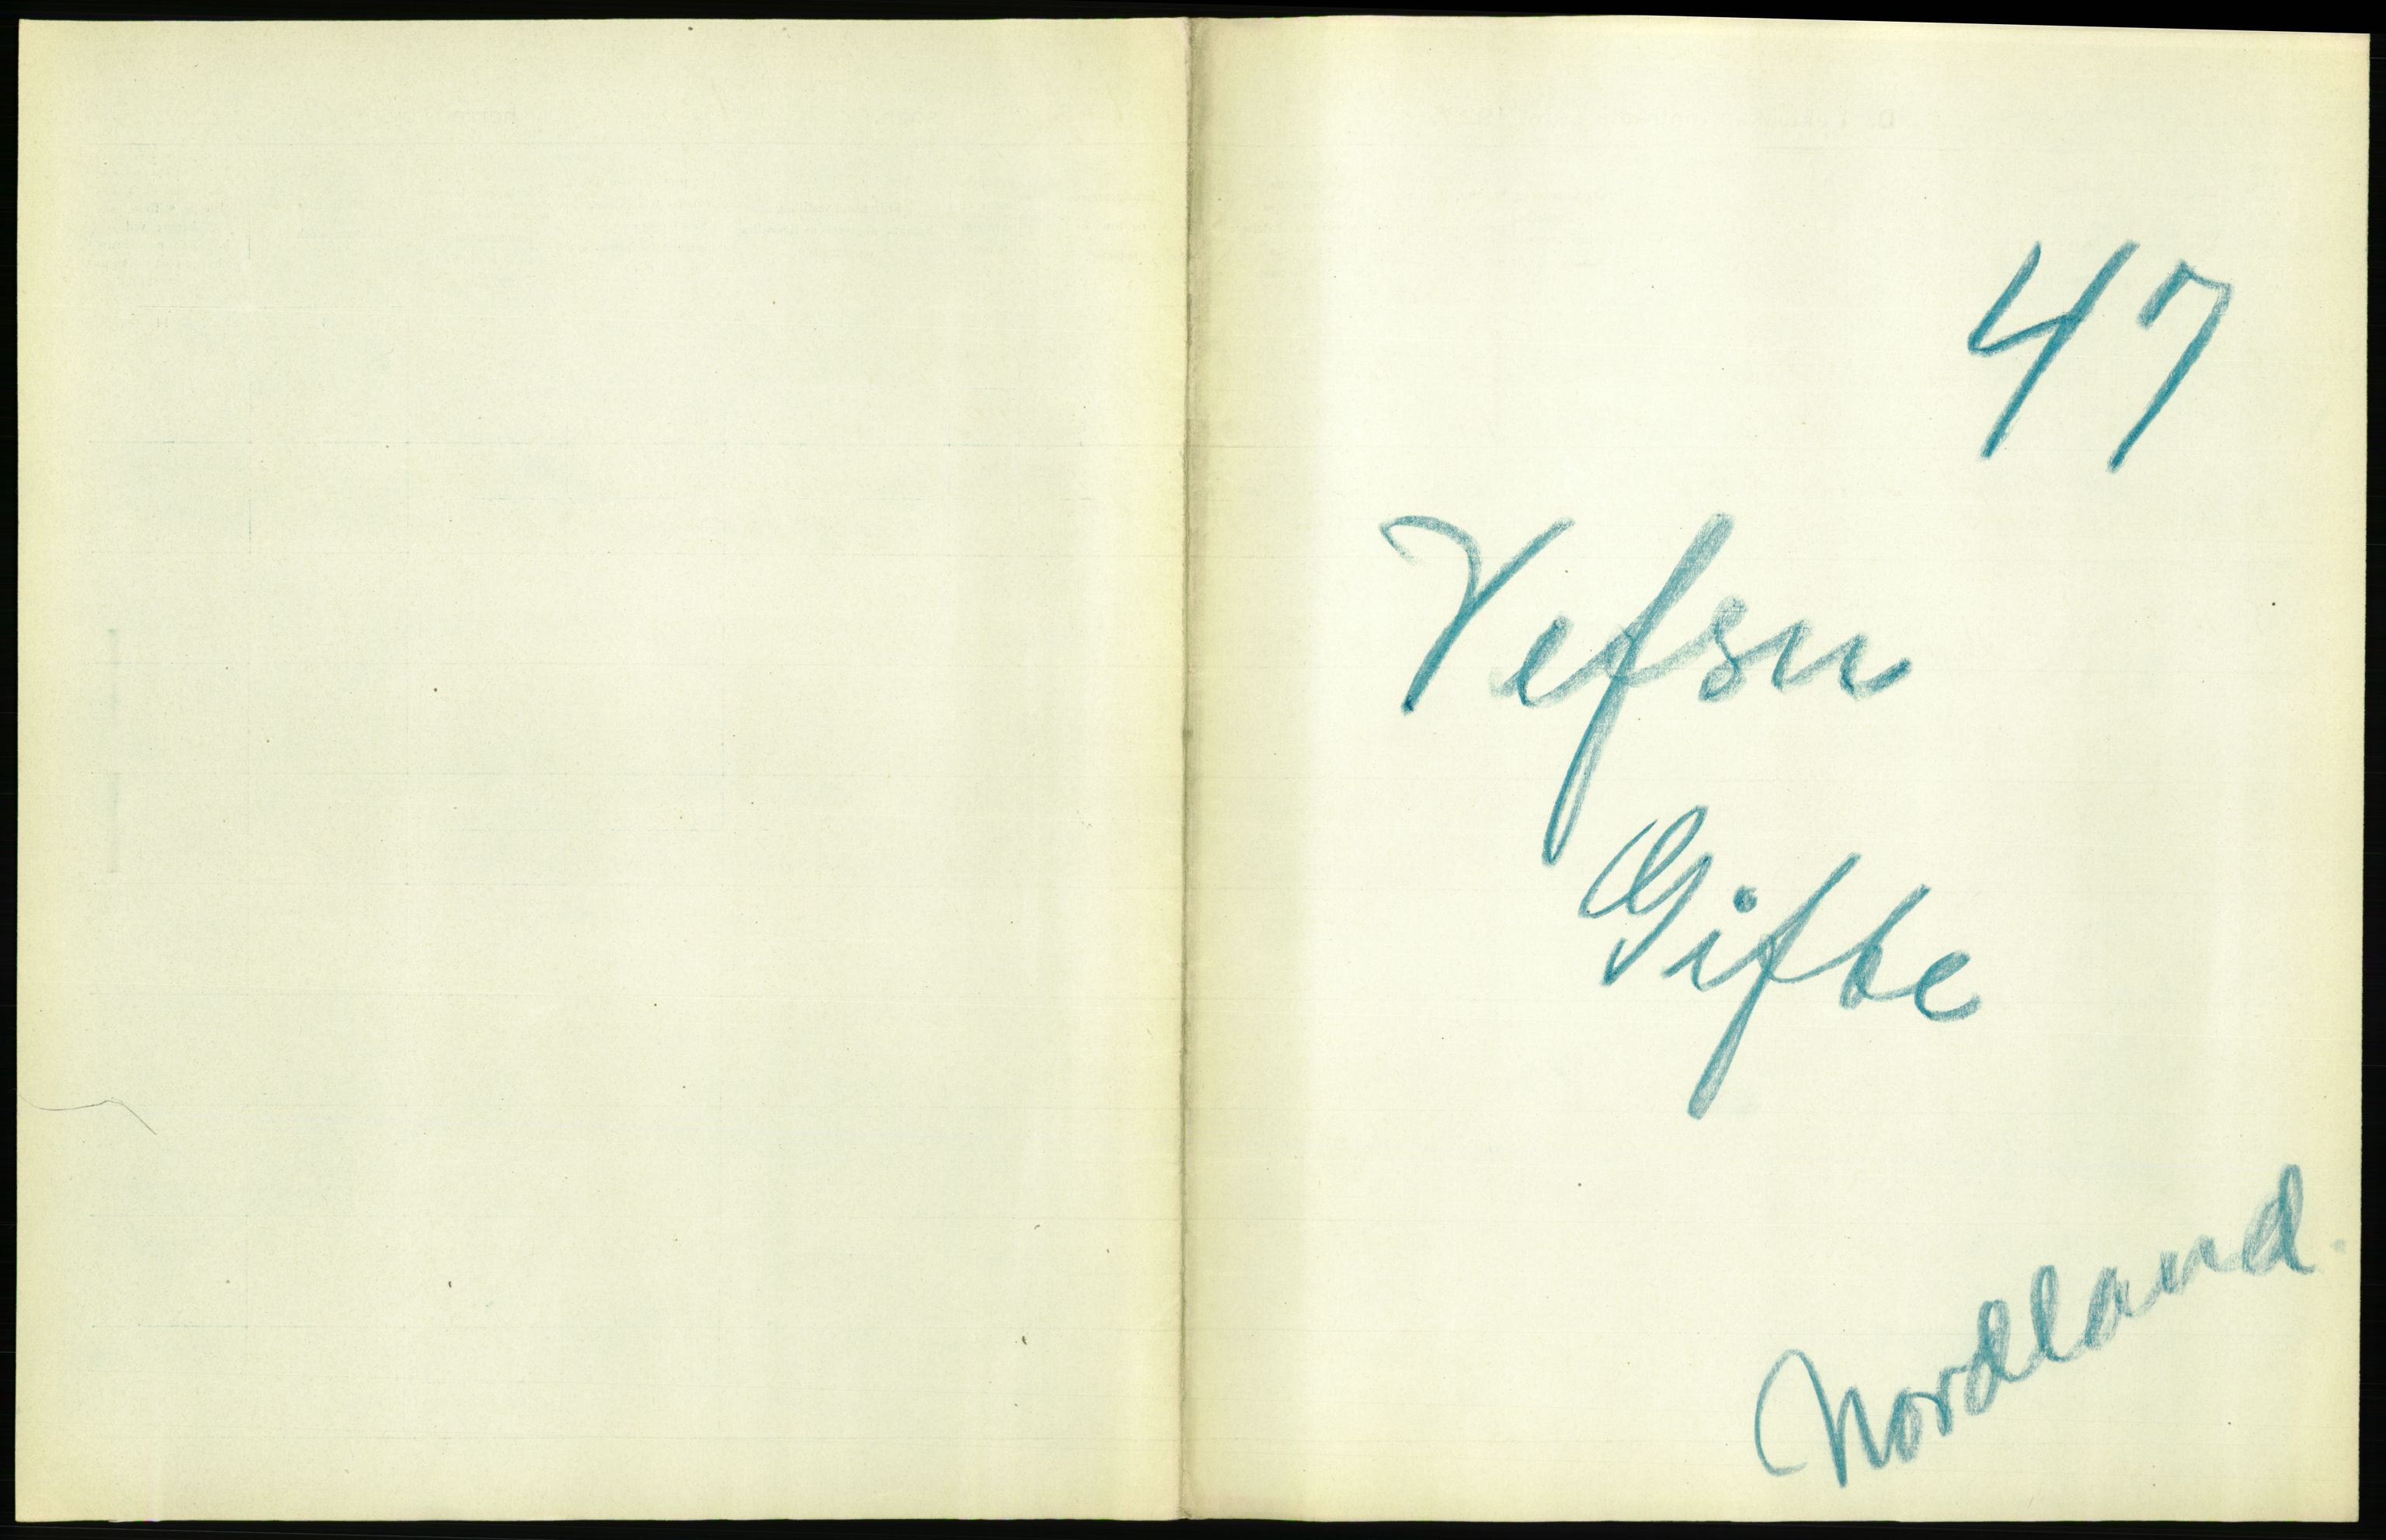 47
Vefsn
Gifte
Nordland.